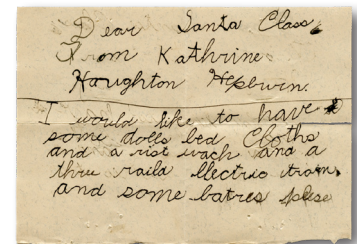 Dear Santa Class
From Kathrine
Houghton Hepburn.
I would like to have
some dolls bed Cloths
and a rist wach and a
thre raild llectric tram,
and some batres plese